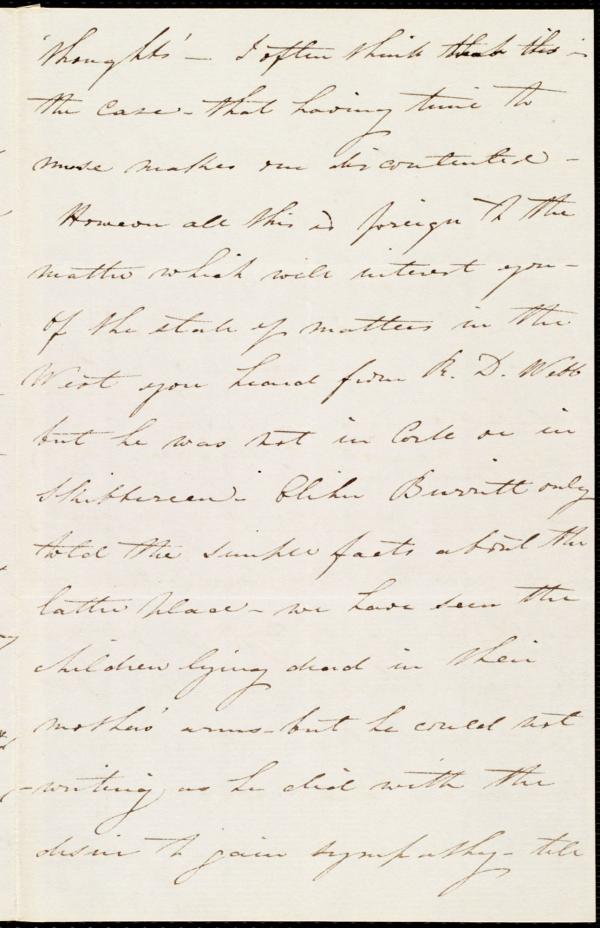 'thoughts' — I often think that this is
the case — that having time to
muse makes one discontented —
However all this is foreign to the
matter which will interest you —
Of the state of matters in the
West you heard from R. D. Webb
but he was not in Cork or in
Skibbereen — Elihu Burritt only
told the simple facts about the
latter place — we have seen the
children lying dead in their
mothers' arms — but he could not
— writing, as he did with the
desire to gain sympathy — tell